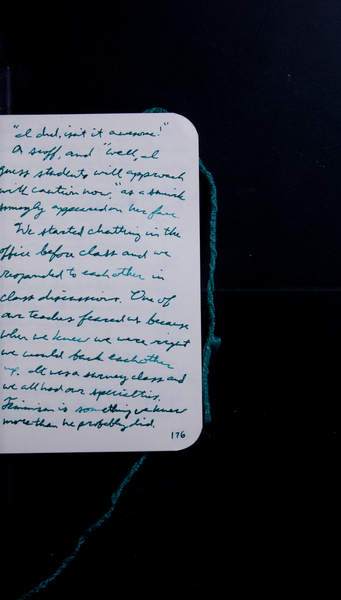 "I did, isn't it awesome!"
A scoff, and "Well, I
guess students will approach
with caution now," as a smirk
smugly appeared on her face.
We started chatting in the
office before class and we
responded to each other in
class discussions. One of
our teachers feared us because
when we knew we were right
we would back each other
up. It was a survey class and
we all had our specialties.
Feminism is something we knew
more than he probably did.
176